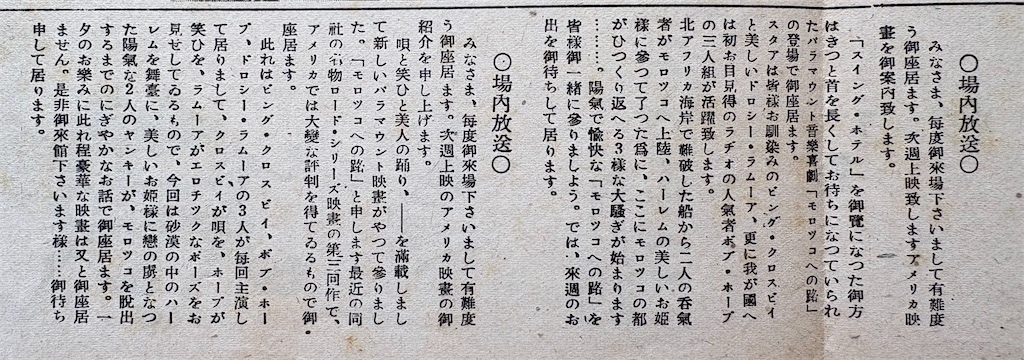 ○場内放送○
みなさま、毎度御来場下さいまして有難度
う御座居ます。次週上映致しますアメリカ映
畫を御案内致します。
「スイング・ホテル」を御覽になつた御方
はきつと首を長くしてお待ちになつていられ
たパラマウント音樂喜劇「モロツコへの路」
の登場で御座居ます。
スタアは皆様お馴染みのビング・クロスビイ
と美しいドロシー・ラムーア、更に我が國へ
は初お目見得のラヂオの人氣者ボブ・ホープ
の三人組が活躍致します。
北アフリカ海岸で難破した船から二人の呑氣
者がモロツコへ上陸、ハーレムの美しいお姫
樣に參つて了つた爲に、ここにモロツコの都
がひつくり返へる3樣な大騷ぎが始まります
………。陽氣で愉快な「モロツコへの路」を
皆樣御一緒に參りましよう。では、來週のお
出を御待ちして居ります。
○場内放送○
みなさま、毎度御來場下さいまして有難度
う御座居ます。次週上映のアメリカ映畫の御
紹介を申し上げます。
唄と笑ひと美人の踊り、――を滿載しまし
て新しいパラマウント映畫がやつて參りまし
た。「モロツコへの路」と申します最近の同
社の名物ロード・シリーズ映畫の第三回作で、
アメリカでは大變な評判を得てゐるもので御
座居ます。
此れはビング・クロス ビイ、ボブ・ホー
プ、ドロシー・ラムーアの3人が每回主演し
て居りまして、クロスビイが唄を、ホープが
笑ひを、ラムーアがエロチツクなポーズをお
見せしてゐるもので、今回は砂漠の中のハー
レムを舞臺に、美しいお姫樣に戀の虜となつ
た陽氣な2人のヤンキーが、モロツコを脫出
するまでのにぎやかなお話で御座居ます。一
夕のお樂みに此れ程豪華な映畫は又と御座居
ません。是非御來館下さいます樣……御待ち
申して居ります。